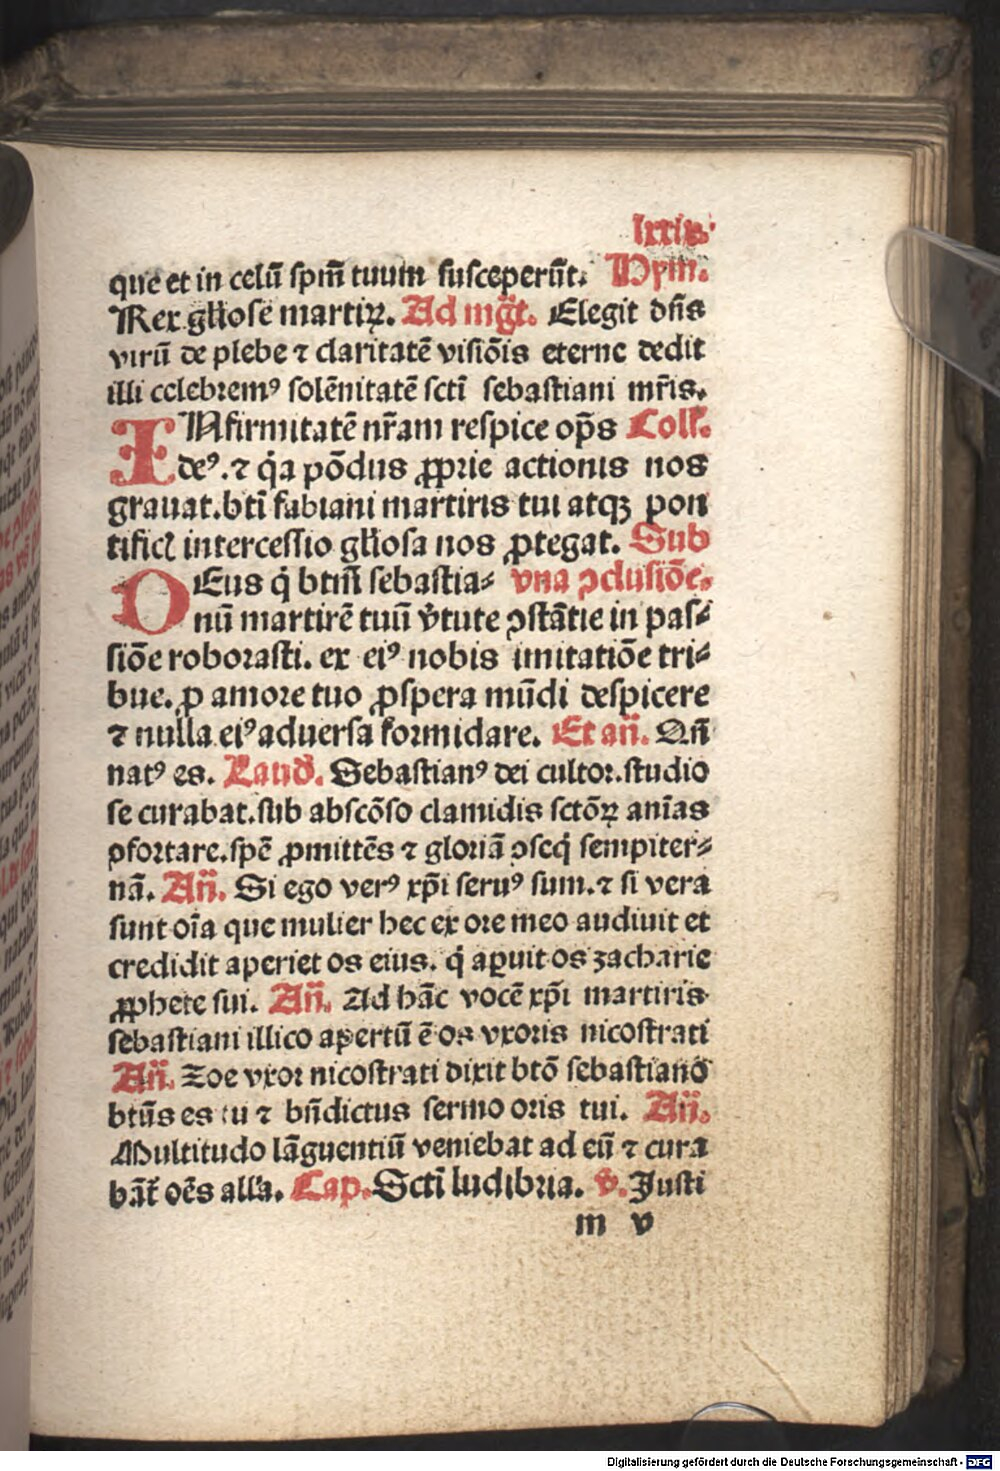 lxxix.
que et in celū spm̄ tuum susceperūt. Hym.
Rex glīose martiꝝ. Ad mḡt. Elegit dn̄s
virū de plebe ⁊ claritatē visiōis eterne dedit
illi celebremꝰ solēnitatē sctī sebastiani mr̄is.
INfirmitatē nr̄am respice op̄s Coll̄.
deꝰ. ⁊ q̇a pōdus ꝓprie actionis nos
grauat. btī fabiani martiris tui atqꝫ pon
tific̄ intercessio glīosa nos ꝓtegat. Sub
DEus q̇ btm̄ sebastia⸗ vna ꝯclusiōe.
nū martirē tuū v̄tute ꝯstātie in pas⸗
siōe roborasti. ex eiꝰ nobis imitatiōe tri⸗
bue. ꝓ amore tuo ꝓspera mūdi despicere
⁊ nulla eiꝰ aduersa formidare. Et an̄. An̄
natꝰ es. Laud̄. Sebastianꝰ dei cultor. studio
se curabat. sub abscōso clamidis sctōꝝ anīas
ꝯfortare. spē ꝓmittēs ⁊ gloriā ꝯseq̇ sempiter⸗
nā. An̄. Si ego verꝰ xp̄i seruꝰ sum. ⁊ si vera
sunt oīa que mulier hec ex ore meo audiuit et
credidit aperiet os eius. q̇ aꝑuit os zacharie
ꝓphete sui. An̄. Ad hāc vocē xp̄i martiris
sebastiani illico apertū ē os vxoris nicostrati
An̄. Zoe vxor nicostrati dixit btō sebastiano
btūs es tu ⁊ bn̄dictus sermo oris tui. An̄.
Multitudo lāguentiū veniebat ad eū ⁊ cura
bāt̄ oēs alla. Cap. Sctī ludibria. v̄. Justi
m v
Digitalisierung gefördert durch die Deutsche Forschungsgemeinschaft - DFG